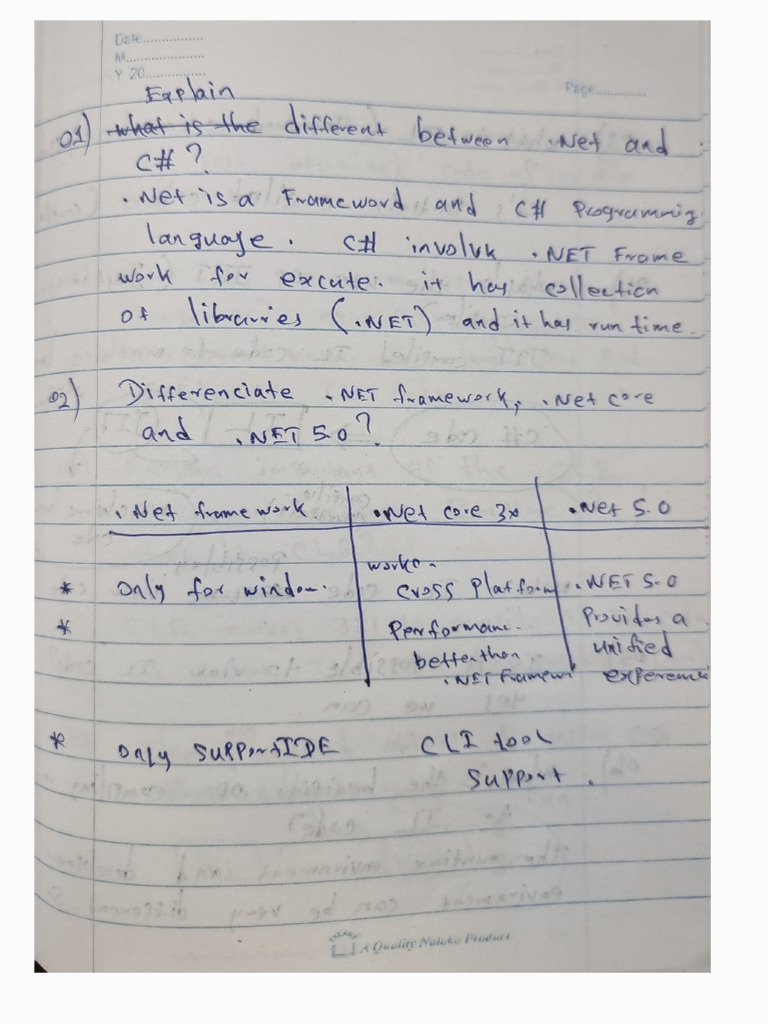 Date...............
M.....................
Y 20...............
Page.............
Explain
01) what is the different between .Net and
C# ?
. Net is a Frameword and C# Programming
language. C# involvk .NET Frame
work for excute. it has collection
of libraries (.NET) and it has run time.
02) Differenciate .NET framework, .Net core
and .NET 5.0?
.Net frame work. .Net core 3x .Net 5.0
works
* Only for window. Cross Platform .NET 5.0
* Performanc. Provides a
better than unified
.NET Framewr experenc
* Only SUPPortIDE CLI tool
SUPPort.
A Quality Nataka Product